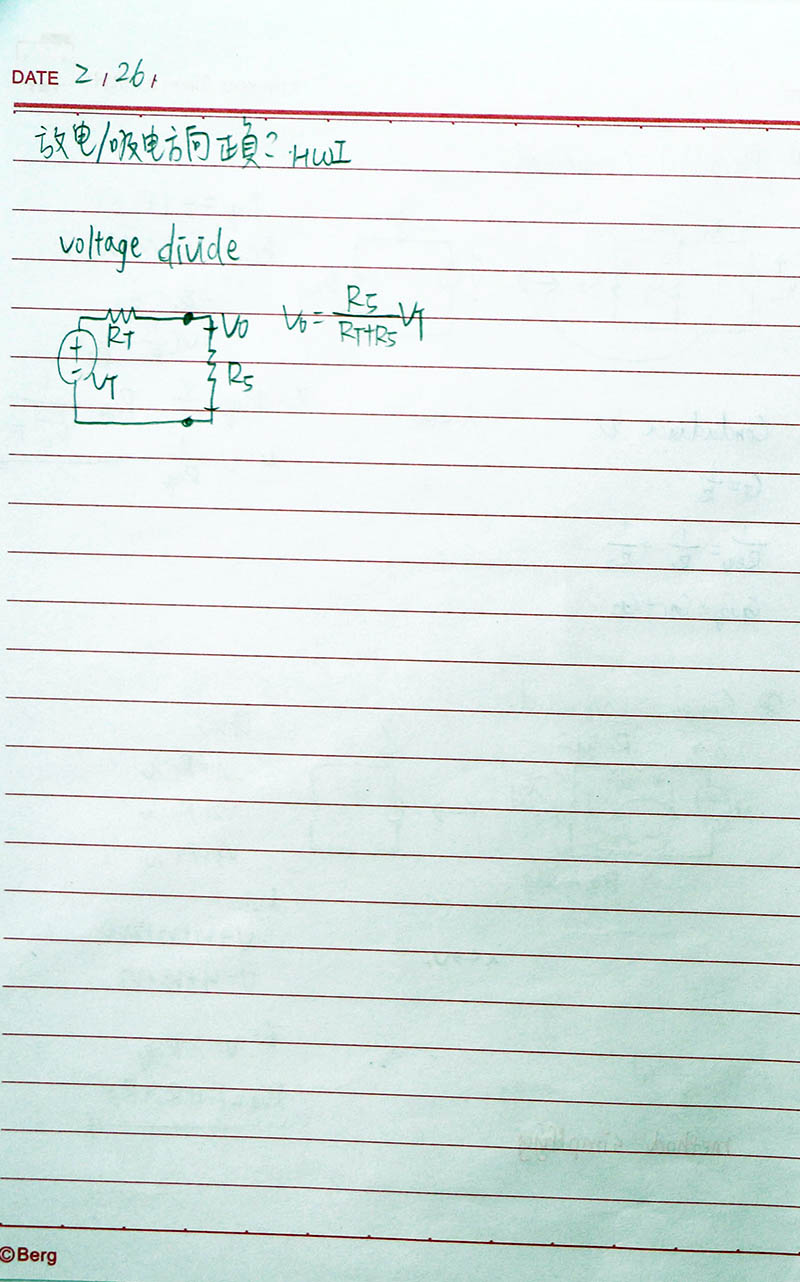 DATE 2,26,
放电/吸电方向正負? HWI
voltage divide
RT
VO
VT
R5
Vo = R5/(RT+R5) VT
©Berg